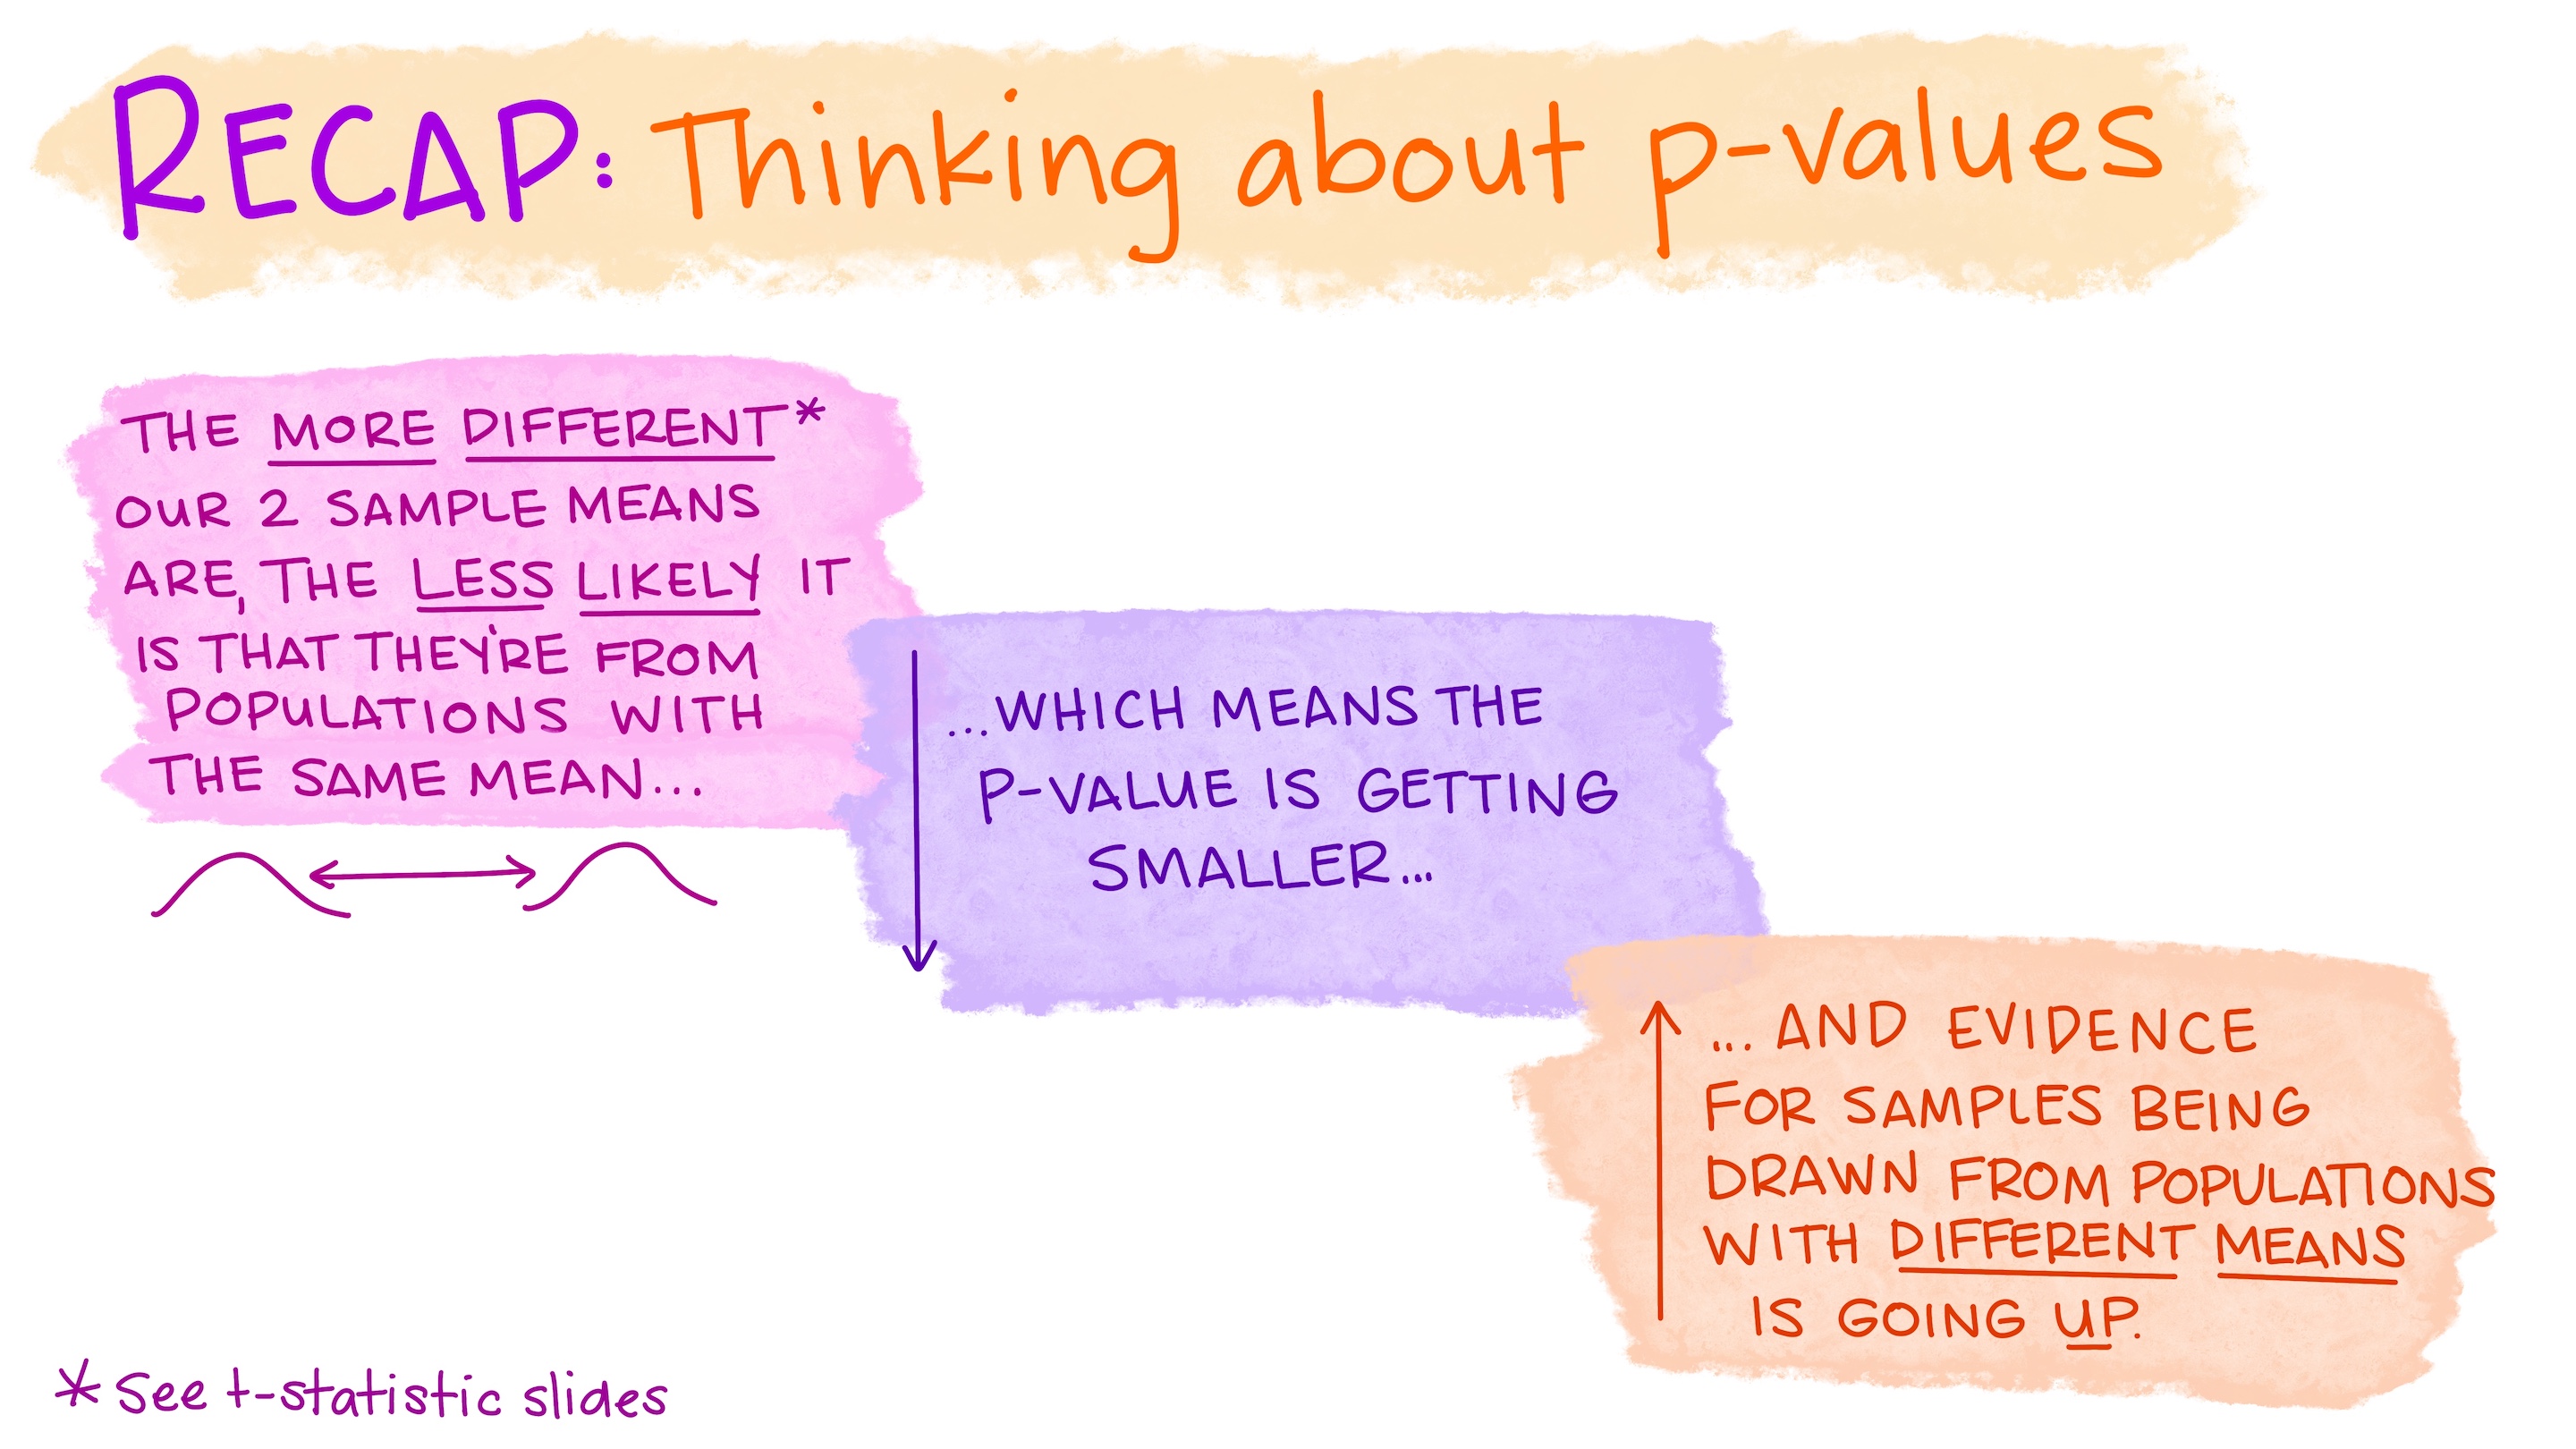 RECAP: Thinking about p-values
THE MORE DIFFERENT*
OUR 2 SAMPLE MEANS
ARE, THE LESS LIKELY IT
IS THAT THEY'RE FROM
POPULATIONS WITH
THE SAME MEAN...
...WHICH MEANS THE
P-VALUE IS GETTING
SMALLER...
... AND EVIDENCE
FOR SAMPLES BEING
DRAWN FROM POPULATIONS
WITH DIFFERENT MEANS
IS GOING UP.
* See t-statistic slides